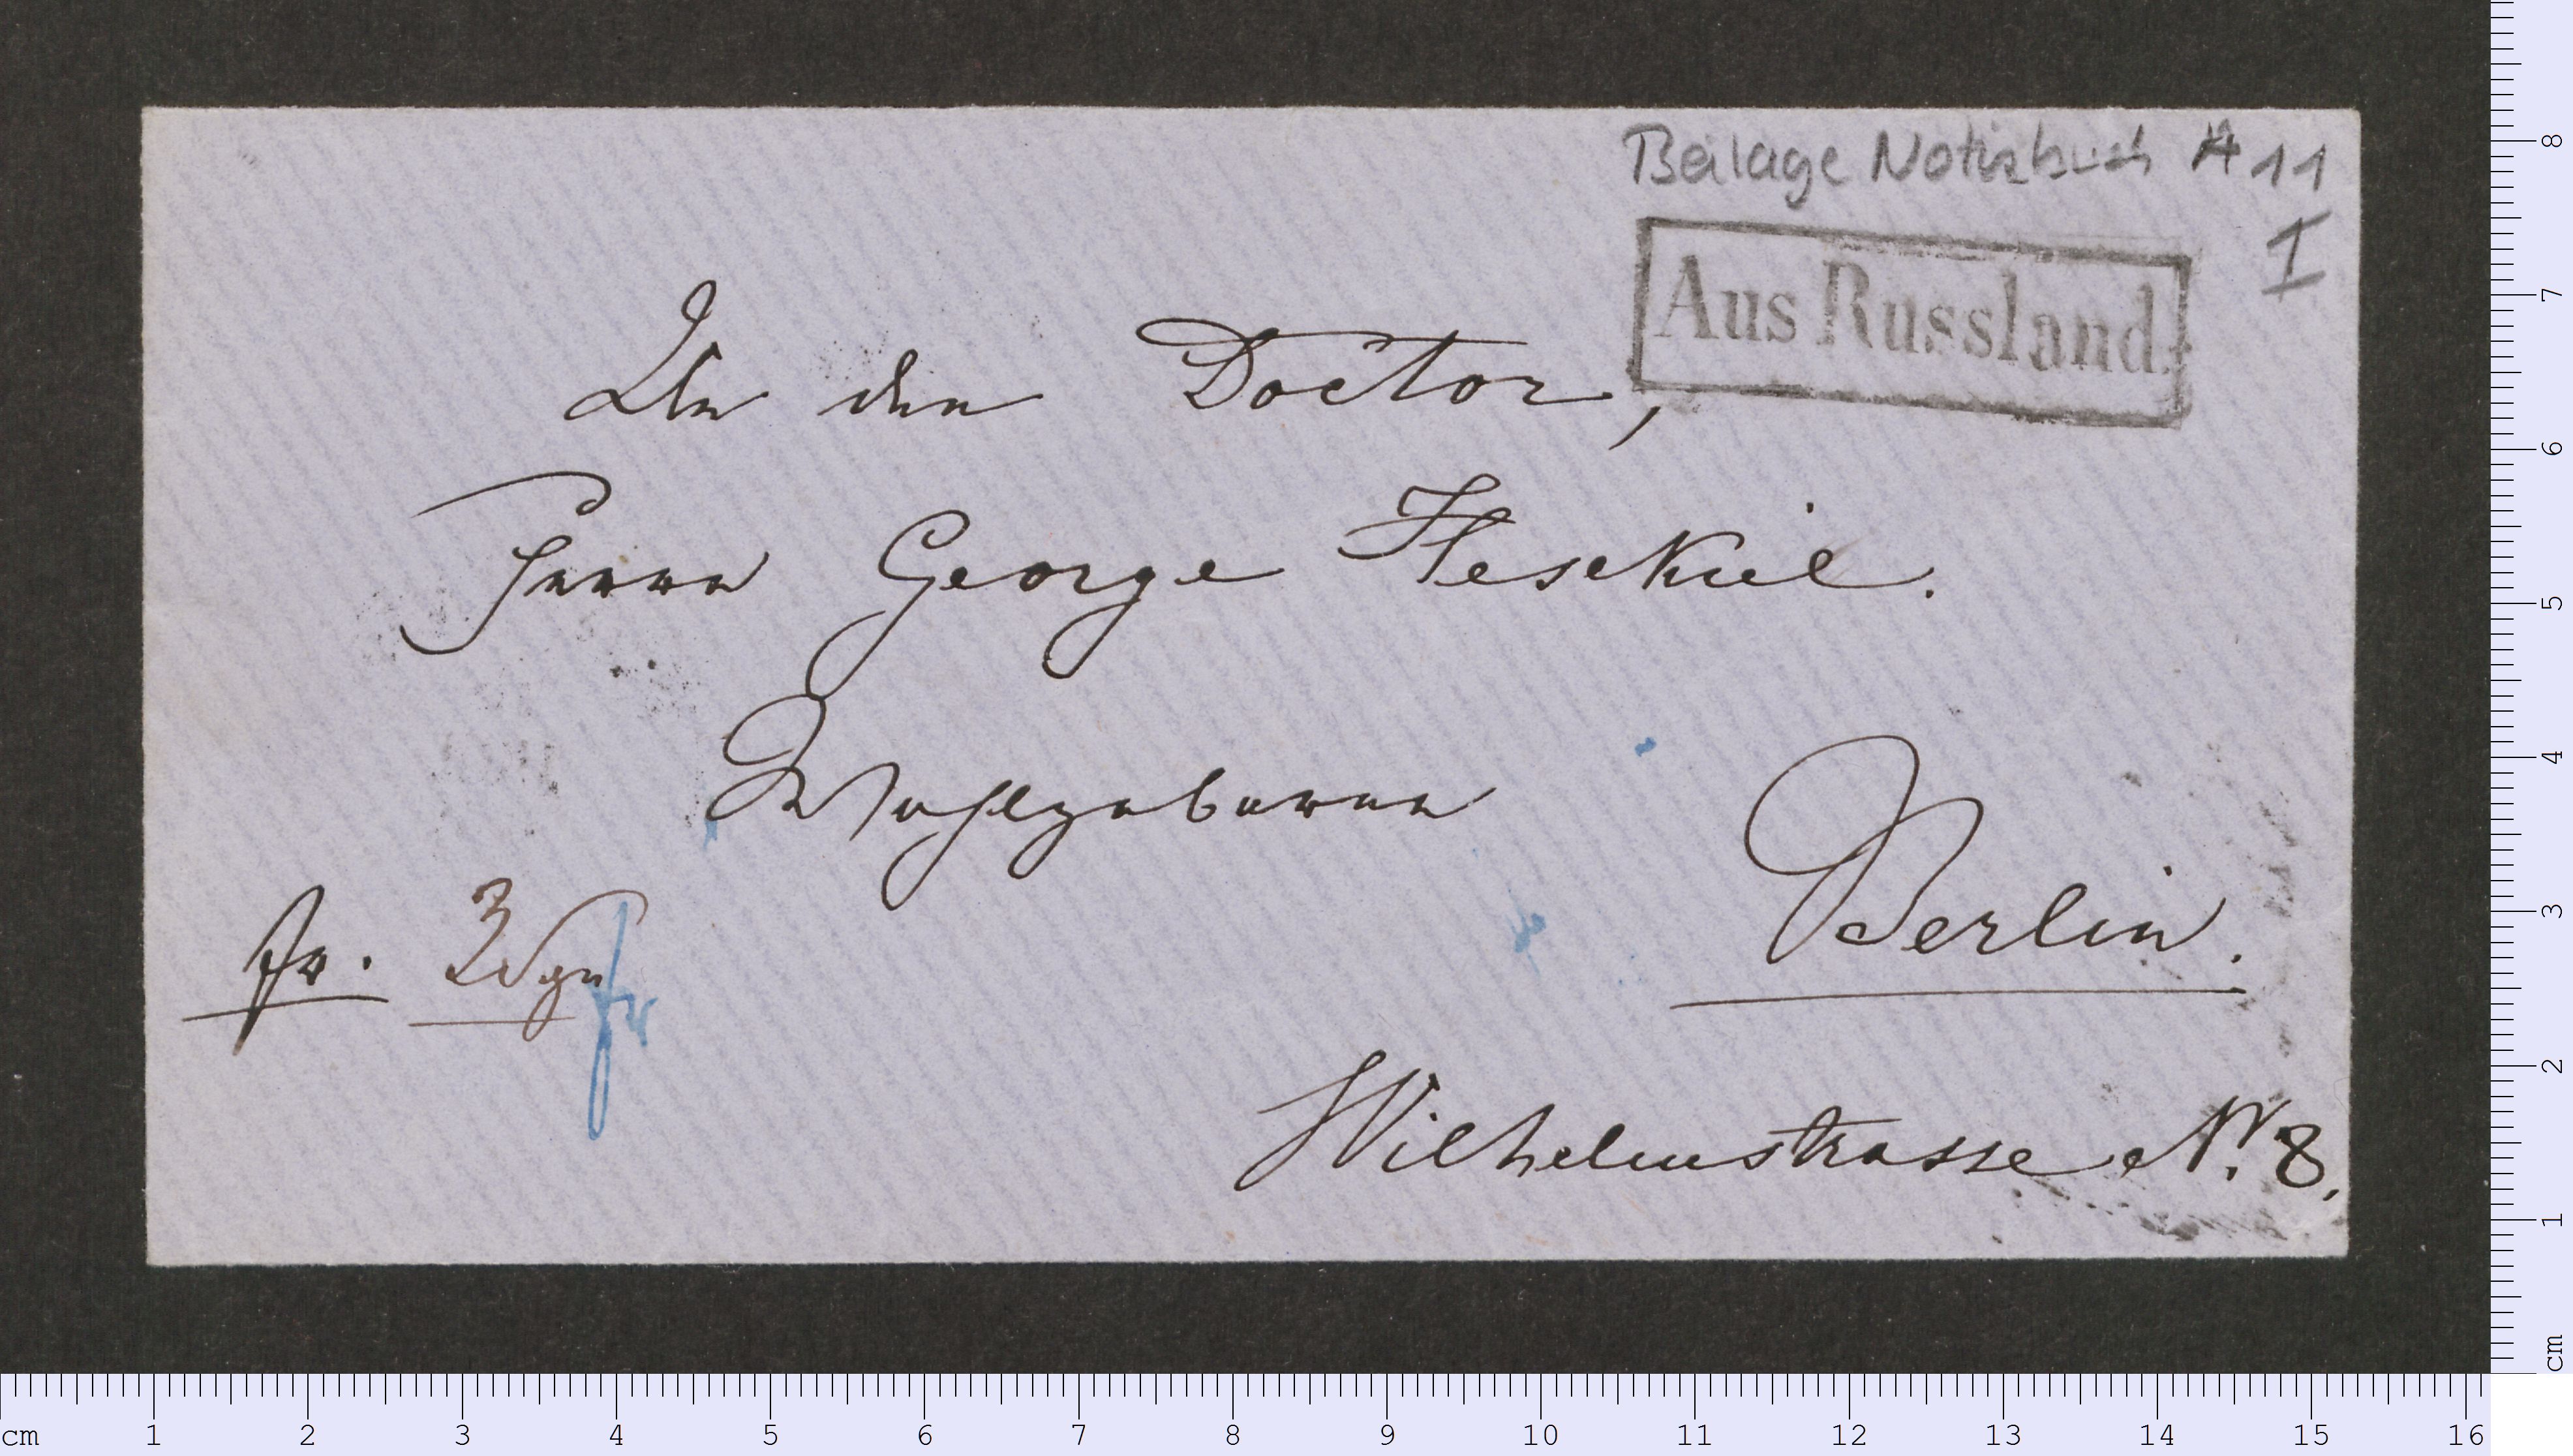 Beilage Notizbuch A 11
I
Aus Russland.
An den Doctor,
Herrn George Hesekiel.
Wohlgeboren
Berlin.
fr. 3 Sgr
fr
Wilhelmstrasse N. 8.
8
7
6
5
4
3
2
1
cm
cm 1 2 3 4 5 6 7 8 9 10 11 12 13 14 15 16